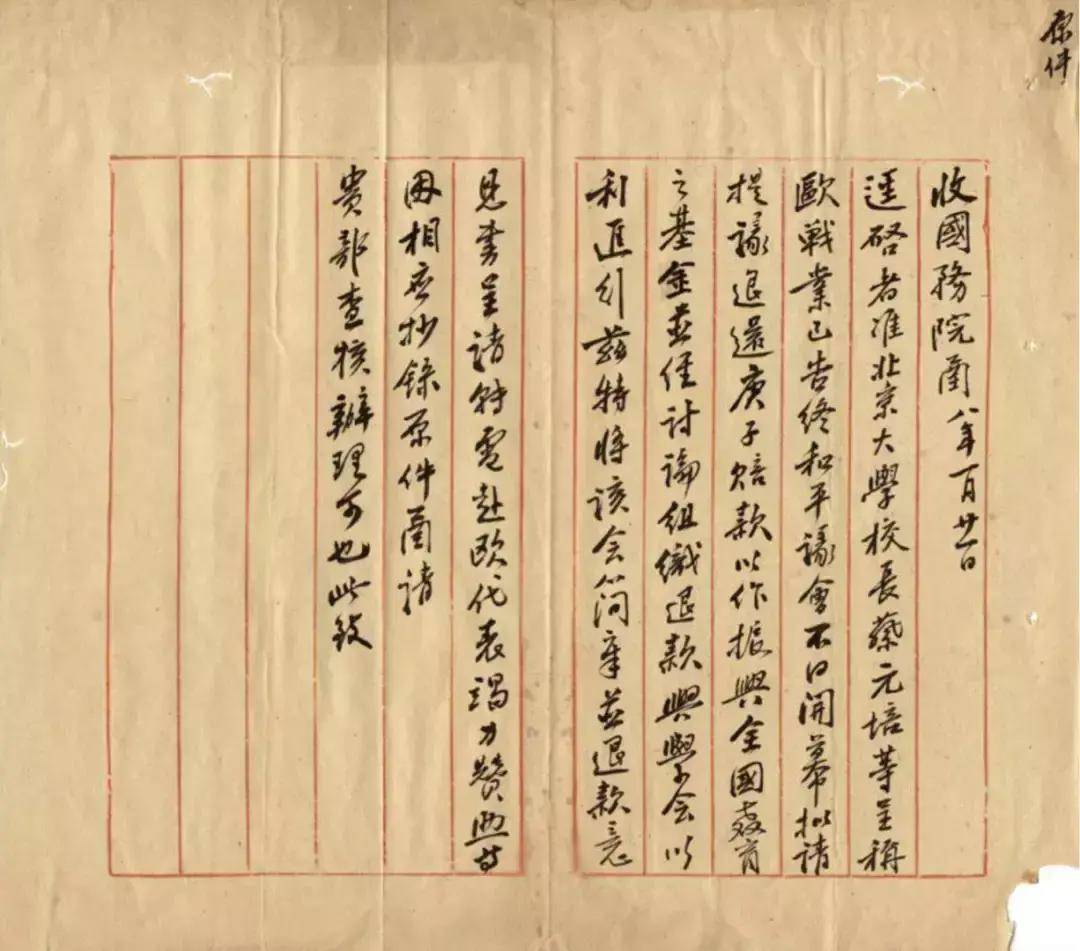 原件
收國務院函 八年一月廿一日
逕啓者准北京大學校長蔡元培等呈稱
歐戰業已告終和平議會不日開幕擬請
提議退還庚子賠款以作振興全國教育
之基金並經討論組織退款興學會以
利進行茲特將該會簡章並退款意
見書呈請轉電赴歐代表竭力贊助等
因相應抄錄原件函請
貴部查核辦理可也此致